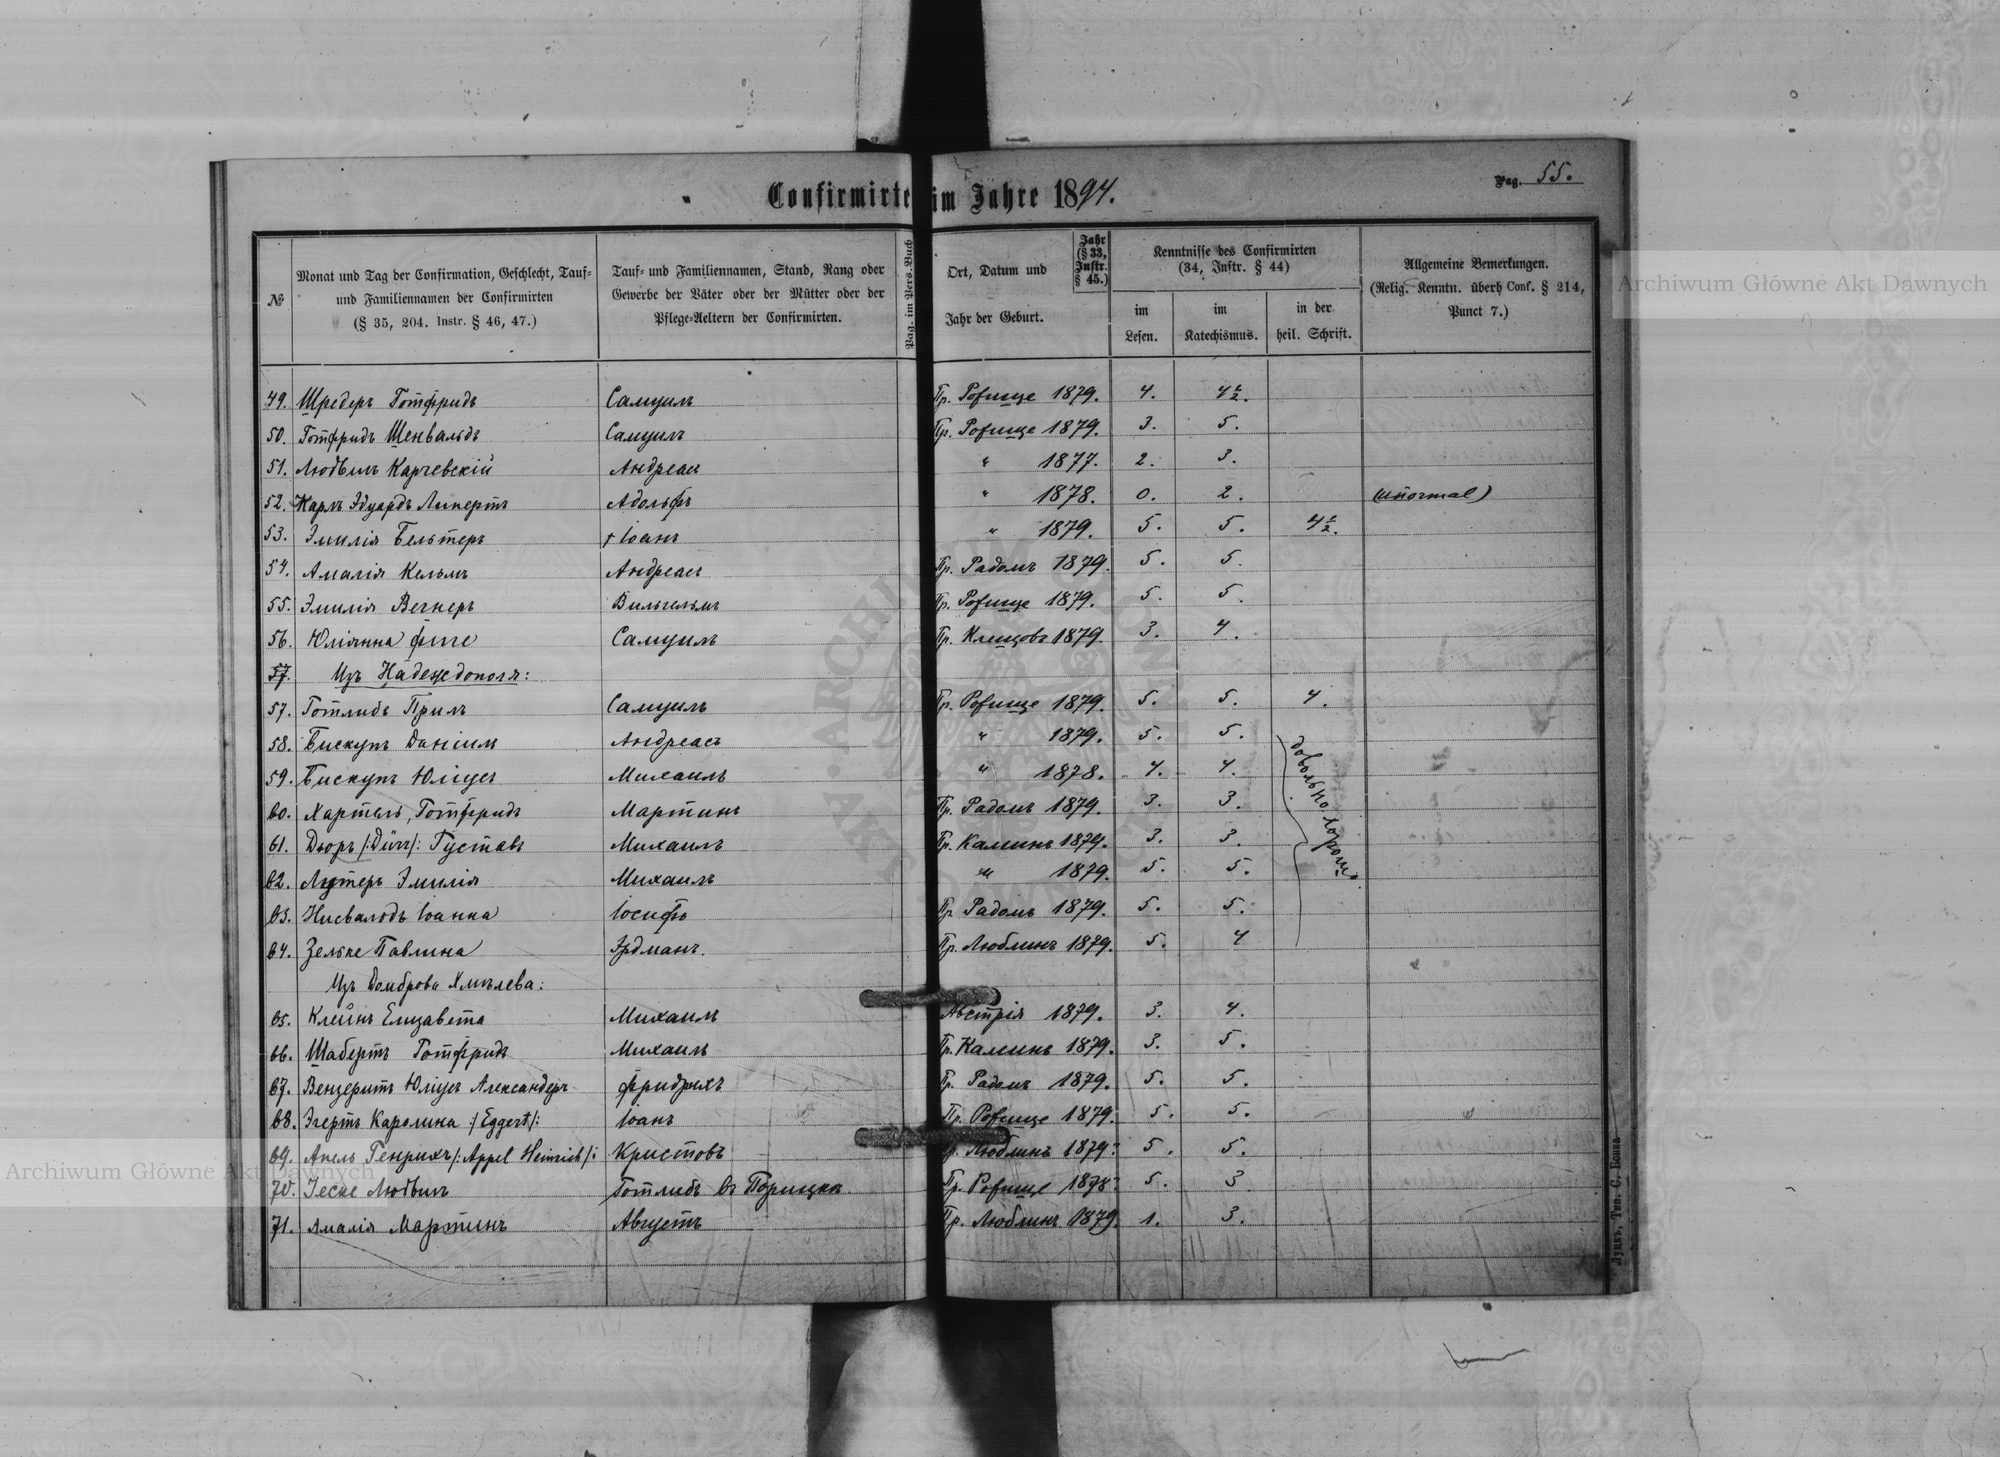 Confirmirte im Jahre 1894.
Pag. 55.
№
Monat und Tag der Confirmation, Geschlecht, Tauf-
und Familiennamen der Confirmirten
(§ 35, 204. Instr. § 46, 47.)
Tauf- und Familiennamen, Stand, Rang oder
Gewerbe der Väter oder der Mütter oder der
Pflege-Aeltern der Confirmirten.
Pag. im Pers. Buch
Ort, Datum und
Jahr der Geburt.
Jahr
(§ 33,
Instr.
§ 45.)
Kenntnisse des Confirmirten
(34, Instr. § 44)
im
Lesen.
im
Katechismus.
in der
heil. Schrift.
Allgemeine Bemerkungen.
(Relig. Kenntn. überh Conf. § 214,
Punct 7.)
49. Шредеръ Готфридъ Самуилъ Пр. Рожище 1879. 4. 4½.
50. Готфридъ Шенвальдъ Самуилъ Пр. Рожище 1879. 3. 5.
51. Людвигъ Карчевскій Андреасъ " 1877. 2. 3.
52. Карлъ Эдуардъ Липертъ Адольфъ " 1878. 0. 2.
53. Эмилія Бельтеръ † Іоанъ " 1879. 5. 5. 4½.
54. Амалія Кельмъ Андреасъ Пр. Радомъ 1879. 5. 5.
55. Эмилія Вегнеръ Вильгельмъ Пр. Рожище 1879. 5. 5.
56. Юліянна Самуилъ Пр. 1879. 3. 4.
57. Изъ Надеждополя:
57. Готлибъ Прилъ Самуилъ Пр. Рожище 1879. 5. 5. 4.
58. Бискупъ Даніилъ Андреасъ " 1879. 5. 5.
59. Бискупъ Юліусъ Михаилъ " 1878. 4. 4.
60. Хартель, Готфридъ Мартинъ Пр. Радомъ 1879. 3. 3.
довольно хорошо.
61. Дюръ /:Dürr/: Густавъ Михаилъ Пр. Калишъ 1879. 3. 3.
62. Лютеръ Эмилія Михаилъ " 1879. 5. 5.
63. Нисвальдъ Іоанна Іосифъ Пр. Радомъ 1879. 5. 5.
64. Зельке Павлина Эрдманъ. Пр. Люблинъ 1879. 5. 4
Изъ Домброва Хмѣлева:
65. Клейнъ Елизавета Михаилъ Австрія 1879. 3. 4.
66. Шабертъ Готфридъ Михаилъ Пр. Калишъ 1879. 3. 5.
67. Венцеритъ Юліусъ Александеръ Фридрихъ Пр. Радомъ 1879. 5. 5.
68. Эгертъ Каролина :/Eggert/: Іоанъ Пр. Рожище 1879. 5. 5.
69. Апель Генрихъ /:Appel Heinrich/: Кристовъ Пр. Люблинъ 1879. 5. 5.
70. Іеске Людвигъ Готлибъ въ Порицкѣ. Пр. Рожище 1878. 5. 3.
71. Амалія Мартинъ Августъ Пр. Люблинъ 1879. 1. 3.
Луцкъ, Тип. С. Бонка
Archiwum Główne Akt Dawnych
Archiwum Główne Akt Dawnych